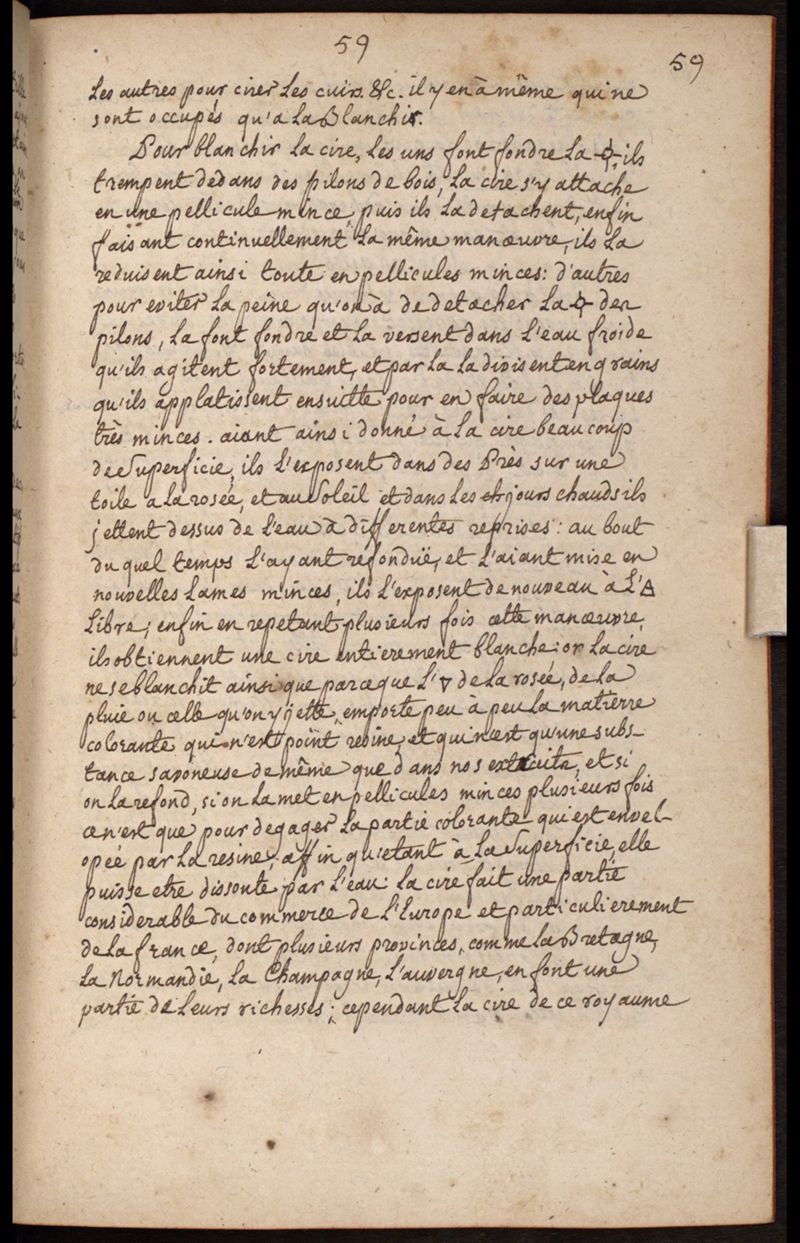 59
59
les autres pour cirer les cuirs. &c. il y en à même qui ne
sont occupés qu'a la Blanchir.
Pour blanchir la cire, les uns font fondre la 🜊, ils
trempent dedans des pilons de bois, la cire s'y attache
en une pellicule mince, puis ils la detachent, enfin
faisant continuellement la même manœuvre, ils la
reduisent ainsi toute en pellicules minces: d'autres
pour eviter la peine qu'on à de detacher la 🜊 des
pilons, la font fondre et la versent dans l'eau froide
qu'ils agitent fortement, et par la la divisent en grains
qu'ils applatissent ensuitte pour en faire des plaques
très minces. aiant ainsi donné à la cire beaucoup
de Superficie, ils l'exposent dans des Près sur une
toile a la rosée, et au Soleil et dans les jours chauds ils
jettent dessus de l'eau à differentes reprises: au bout
du quel temps l'ayant refonduë, et l'aiant mise en
nouvelles lames minces, ils l'exposent de nouveau à l'🜁
Libre; enfin en repetant plusieurs fois cette manœuvre,
ils obtiennent une cire entierement blanche: or la cire
ne se blanchit ainsi que parceque l'▽ de la rosée, de la
pluie ou celle qu'on y jette, emporte peu à peu la matierre
colorante qui n'est point resine, et qui n'est qu'une subs-
tance savoneuse de même que dans nos extraits, et si
on la refond, si on la met en pellicules minces plusieurs fois
ce n'est que pour degager la partie colorante qui est envel-
opée par la resine; affin qu'etant à la Superficie, elle
puisse etre dissoute par l'eau: la cire fait une partie
considerable du commerce de l'Europe et particulierement
de la france, dont plusieurs provinces, comme la Bretagne,
la Normandie, la Champagne, l'auvergne, en font une
partie de leurs richesses; cependant la cire de ce royaume